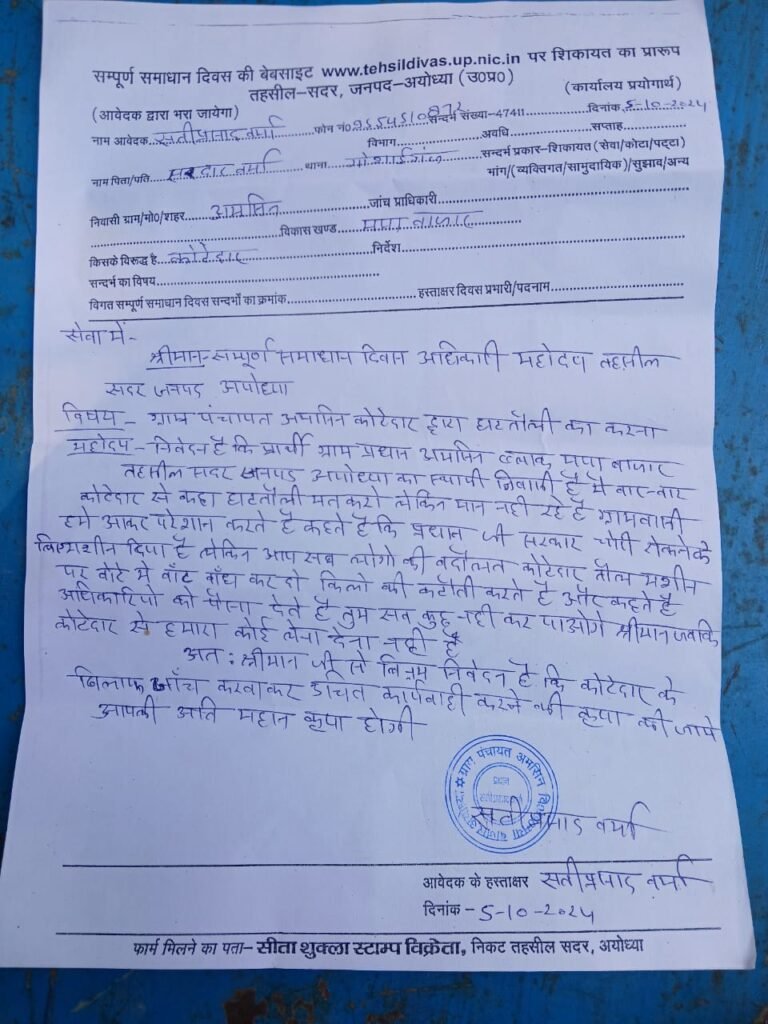 सम्पूर्ण समाधान दिवस की बेबसाइट www.tehsildivas.up.nic.in पर शिकायत का प्रारूप
तहसील-सदर, जनपद-अयोध्या (उ०प्र०)
(आवेदक द्वारा भरा जायेगा) (कार्यालय प्रयोगार्थ)
नाम आवेदक सतीप्रसाद वर्मा फोन नं० सन्दर्भ संख्या-47411 दिनांक 5-10-2024
विभाग अवधि सप्ताह
नाम पिता/पति सरदार वर्मा थाना गोशाईगंज सन्दर्भ प्रकार-शिकायत (सेवा/कोटा/पट्टा)
मांग/(व्यक्तिगत/सामुदायिक)/सुझाव/अन्य
निवासी ग्राम/मो०/शहर अमसिन जांच प्राधिकारी
विकास खण्ड मया बाजार
किसके विरूद्ध है कोटेदार निर्देश
सन्दर्भ का विषय
विगत सम्पूर्ण समाधान दिवस सन्दर्भों का क्रमांक हस्ताक्षर दिवस प्रभारी/पदनाम
सेवा में-
श्रीमान-सम्पूर्ण समाधान दिवस अधिकारी महोदय तहसील
सदर जनपद अयोध्या
विषय - ग्राम पंचायत अमसिन कोटेदार द्वारा घटतौली का करना
महोदय - निवेदन है कि प्रार्थी ग्राम प्रधान अमसिन ब्लाक मया बाजार
तहसील सदर जनपद अयोध्या का स्थायी निवासी है मै बार-बार
कोटेदार से कहा घटतौली मत करो लेकिन मान नही रहे है ग्रामवासी
हमे आकर परेशान करते है कहते है कि प्रधान जी सरकार चोरी रोकने के
मशीन दिया है लेकिन आप सब लोगो की बदौलत कोटेदार तौल मशीन
पर बोरे मे बाँट बाँध कर दो किलो की कटौती करते है और कहते है
अधिकारियो को पैसा देते है तुम सब कुछ नही कर पाओगे श्रीमान जबकि
कोटेदार से हमारा कोई लेना देना नही है
अत: श्रीमान जी से विनम्र निवेदन है कि कोटेदार के
खिलाफ जाँच करवाकर उचित कार्यवाही करने की कृपा की जाये
आपकी अति महान कृपा होगी
ग्राम पंचायत अमसिन
प्रधान
सतीप्रसाद वर्मा
आवेदक के हस्ताक्षर सतीप्रसाद वर्मा
दिनांक - 5-10-2024
फार्म मिलने का पता- सीता शुक्ला स्टाम्प विक्रेता, निकट तहसील सदर, अयोध्या